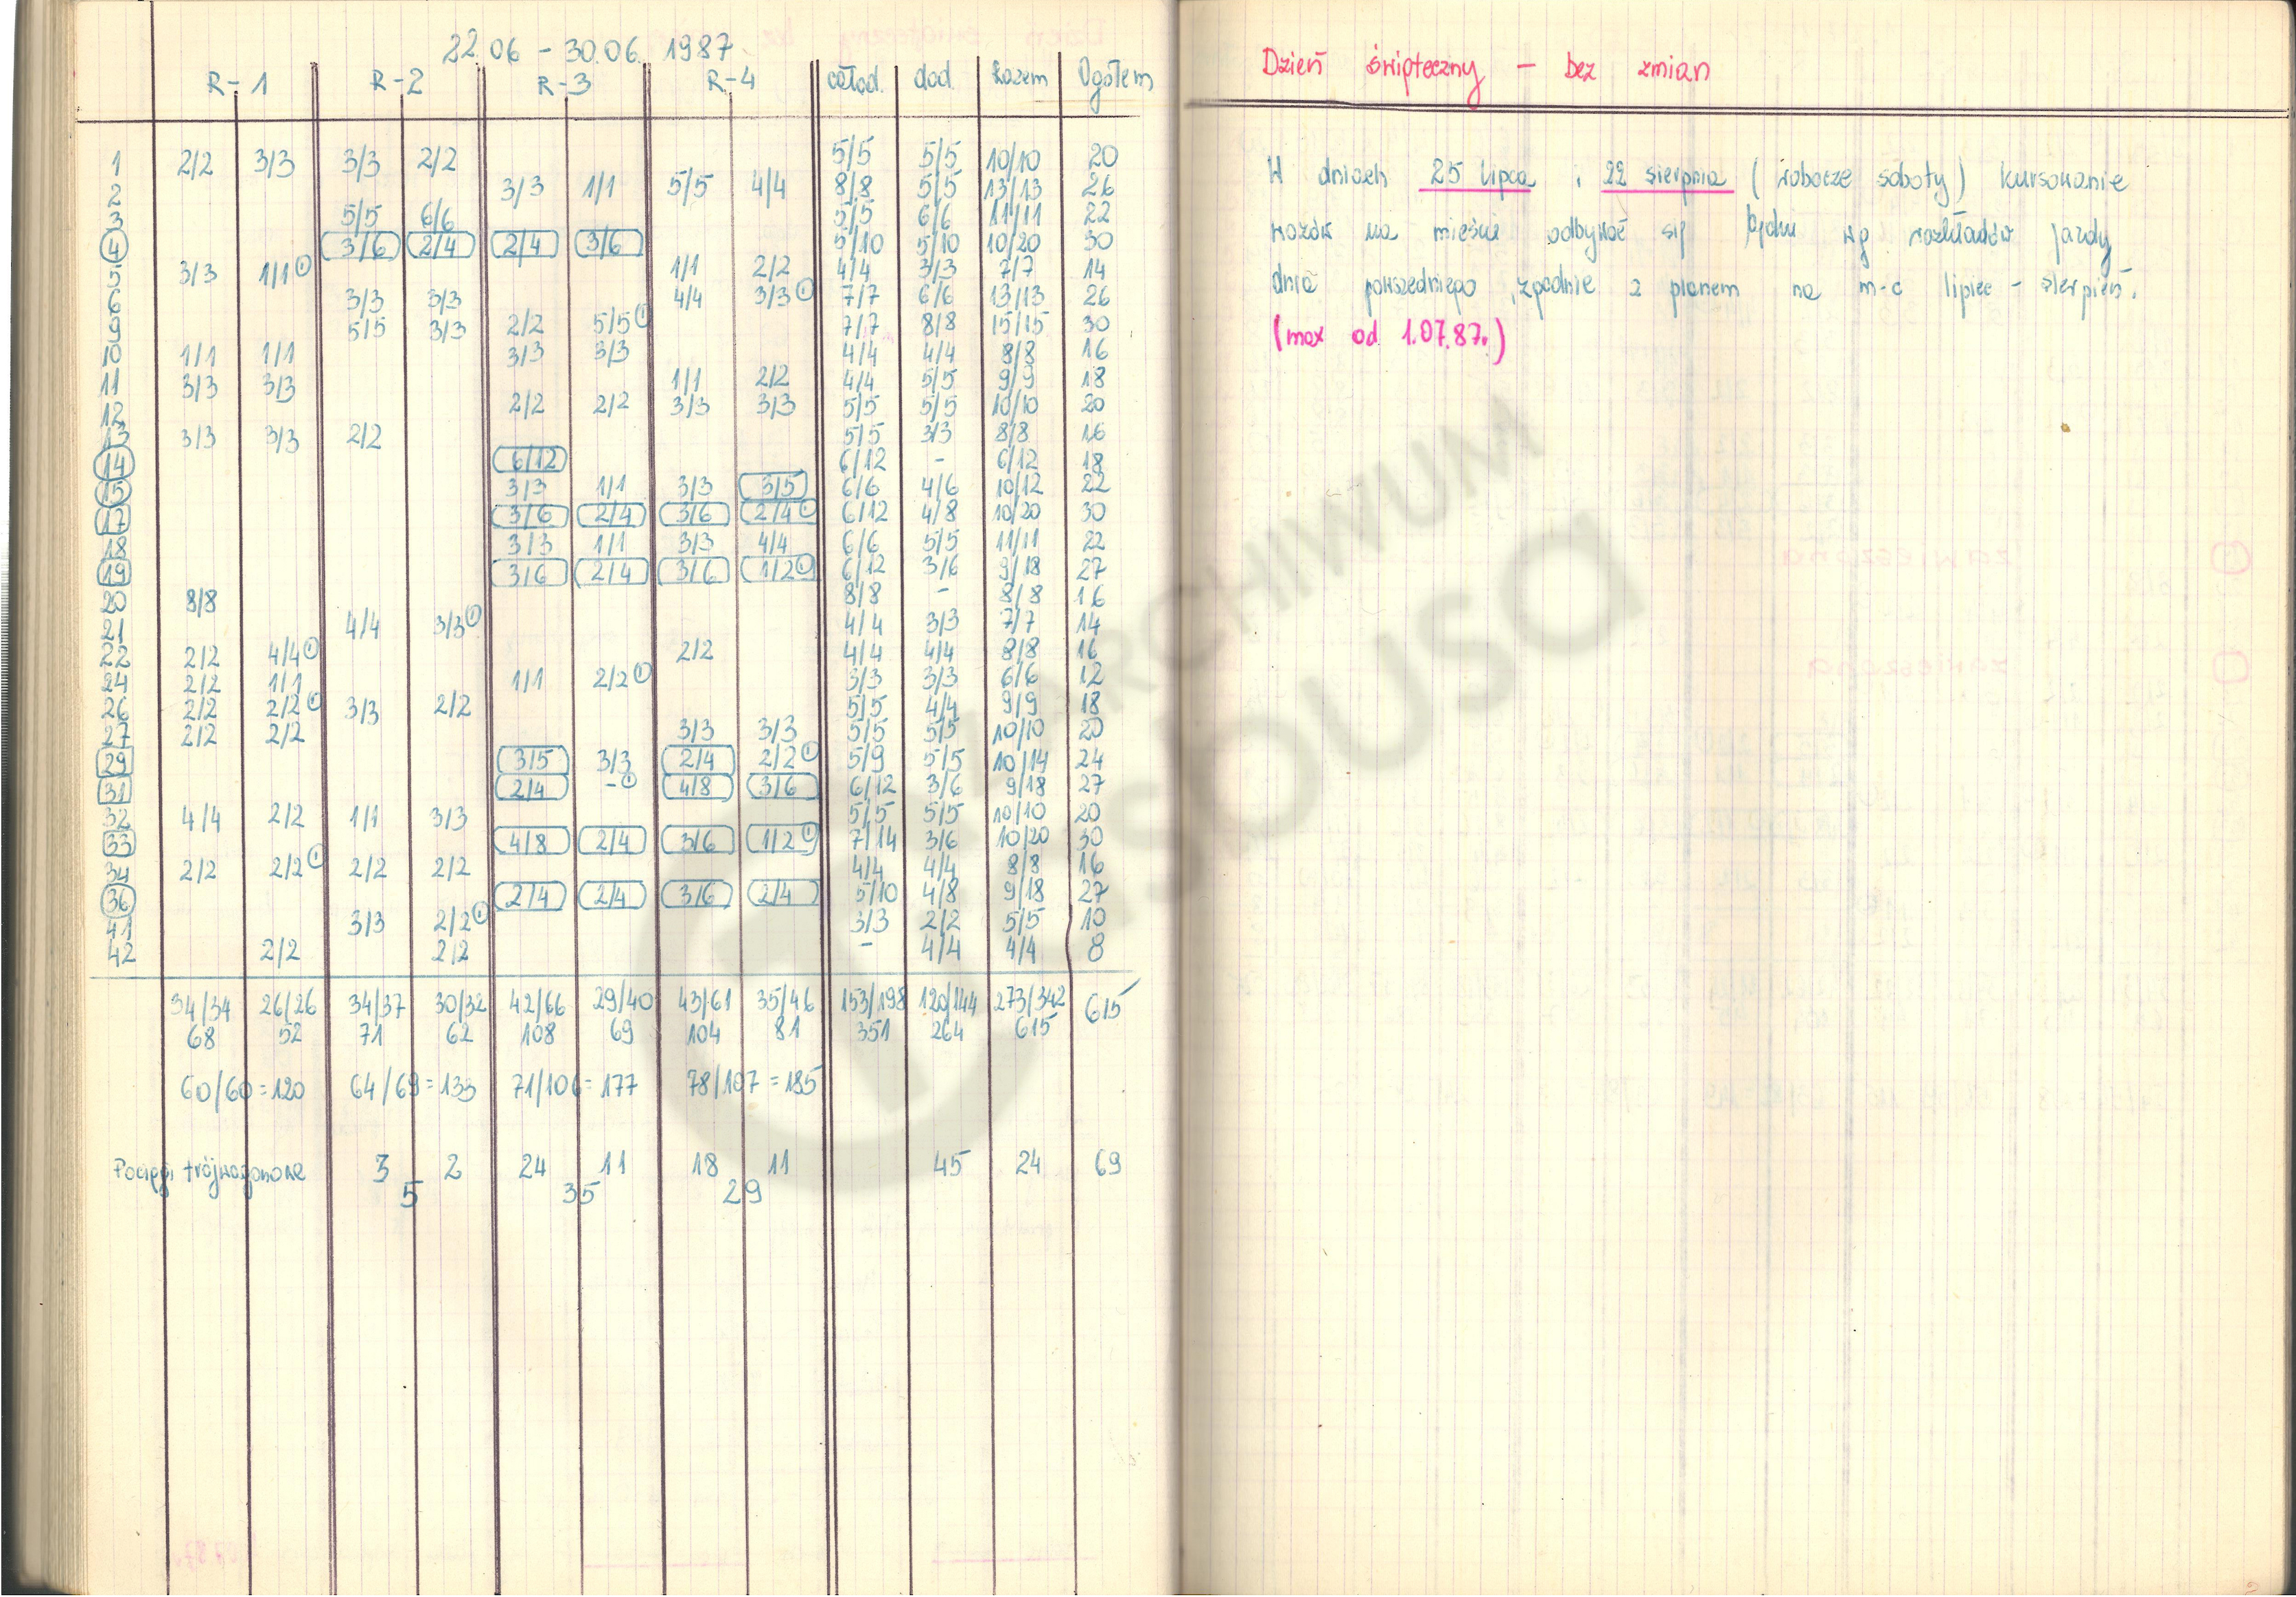 22.06 - 30.06. 1987
R-1 R-2 R-3 R-4 całod. dod. Razem Ogółem
1 2/2 3/3 3/3 2/2 5/5 5/5 10/10 20
2 3/3 1/1 5/5 4/4 8/8 5/5 13/13 26
3 5/5 6/6 5/5 6/6 11/11 22
4 3/6 2/4 2/4 3/6 5/10 5/10 10/20 30
5 3/3 1/1 1 1/1 2/2 4/4 3/3 7/7 14
6 3/3 3/3 4/4 3/3 1 7/7 6/6 13/13 26
9 5/5 3/3 2/2 5/5 1 7/7 8/8 15/15 30
10 1/1 1/1 3/3 3/3 4/4 4/4 8/8 16
11 3/3 3/3 1/1 2/2 4/4 5/5 9/9 18
12 2/2 2/2 3/3 3/3 5/5 5/5 10/10 20
13 3/3 3/3 2/2 5/5 3/3 8/8 16
14 6/12 6/12 - 6/12 18
15 3/3 1/1 3/3 3/5 6/6 4/6 10/12 22
17 3/6 2/4 3/6 2/4 1 6/12 4/8 10/20 30
18 3/3 1/1 3/3 4/4 6/6 5/5 11/11 22
19 3/6 2/4 3/6 1/2 1 6/12 3/6 9/18 27
20 8/8 8/8 - 8/8 16
21 4/4 3/3 1 4/4 3/3 7/7 14
22 2/2 4/4 1 2/2 4/4 4/4 8/8 16
24 2/2 1/1 1/1 2/2 1 3/3 3/3 6/6 12
26 2/2 2/2 1 3/3 2/2 5/5 4/4 9/9 18
27 2/2 2/2 3/3 3/3 5/5 5/5 10/10 20
29 3/5 3/3 2/4 2/2 1 5/9 5/5 10/14 24
31 2/4 - 1 4/8 3/6 6/12 3/6 9/18 27
32 4/4 2/2 1/1 3/3 5/5 5/5 10/10 20
33 4/8 2/4 3/6 1/2 1 7/14 3/6 10/20 30
34 2/2 2/2 1 2/2 2/2 4/4 4/4 8/8 16
36 2/4 2/4 3/6 2/4 5/10 4/8 9/18 27
41 3/3 2/2 1 3/3 2/2 5/5 10
42 2/2 2/2 - 4/4 4/4 8
34/34 26/26 34/37 30/32 42/66 29/40 43/61 35/46 153/198 120/144 273/342 615
68 52 71 62 108 69 104 81 351 264 615
60/60=120 64/69=133 71/106=177 78/107=185
Pociągi trójwagonowe 3 2 24 11 18 11 45 24 69
5 35 29
Dzień świąteczny - bez zmian
W dniach 25 lipca i 22 sierpnia (robocze soboty) kursowanie
wozów na mieście odbywać się będzie wg rozkładów jazdy
dnia powszedniego, zgodnie z planem na m-c lipiec - sierpień.
(max od 1.07.87.)
ARCHIWUM